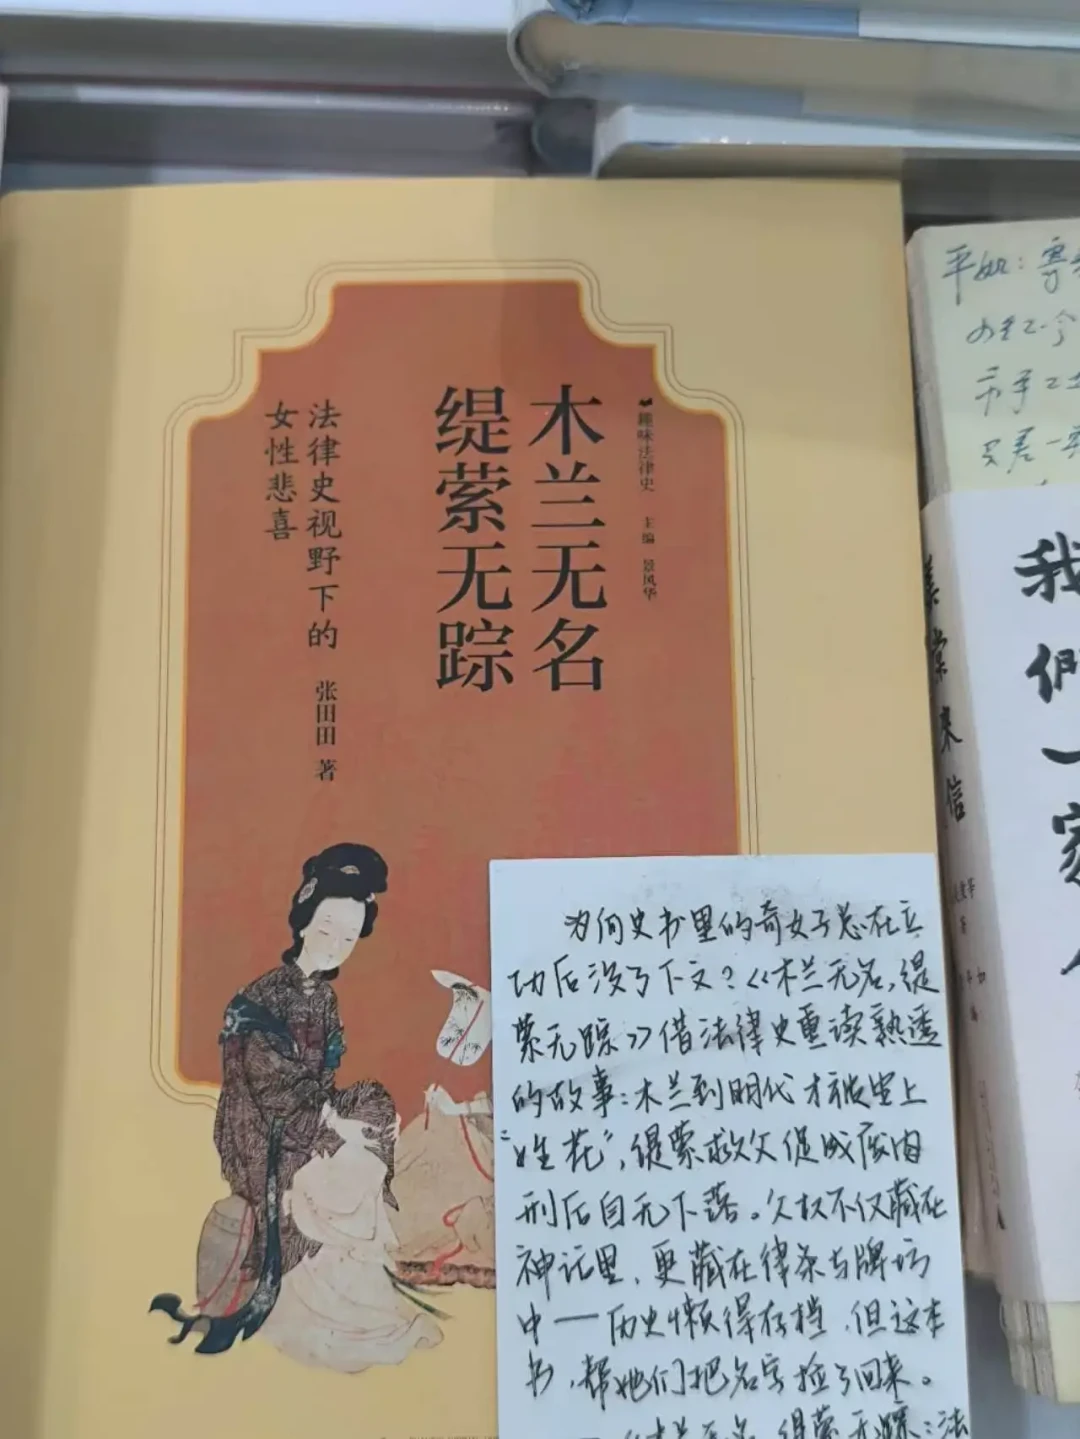 趣味法律史 主编 景风华
木兰无名
缇萦无踪
法律史视野下的
女性悲喜
张田田 著
为何史书里的奇女子总在立
功后没了下文?《木兰无名,缇
萦无踪》借法律史重读熟透
的故事:木兰到明代才被安上
“姓花”,缇萦救父促成废肉
刑后自无下落。父权不仅藏在
神话里,更藏在律条与牌坊
中——历史懒得存档,但这本
书,帮她们把名字捡了回来。
——《木兰无名,缇萦无踪:法
平如:
美棠来信
我們一家